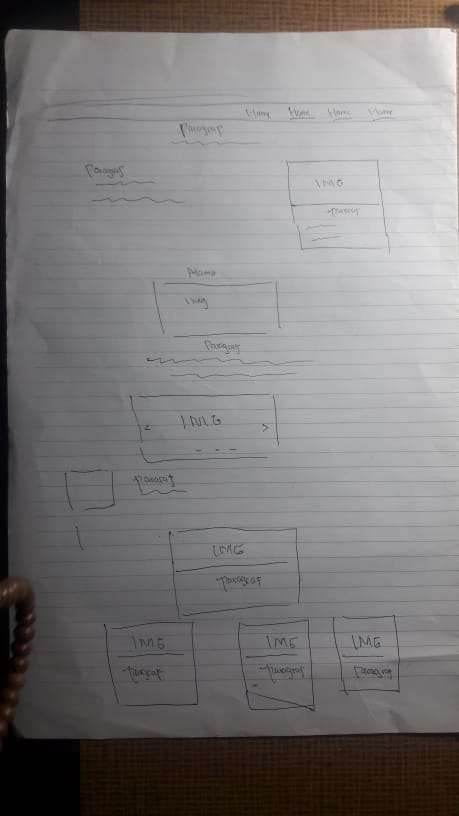 Home Home Home Home
Paragraf
Paragraf
IMG
Paragraf
Img
Paragraf
< IMG >
Pararaf
IMG
Paragraf
IMG IMG IMG
Paragraf Paragraf Paragraf